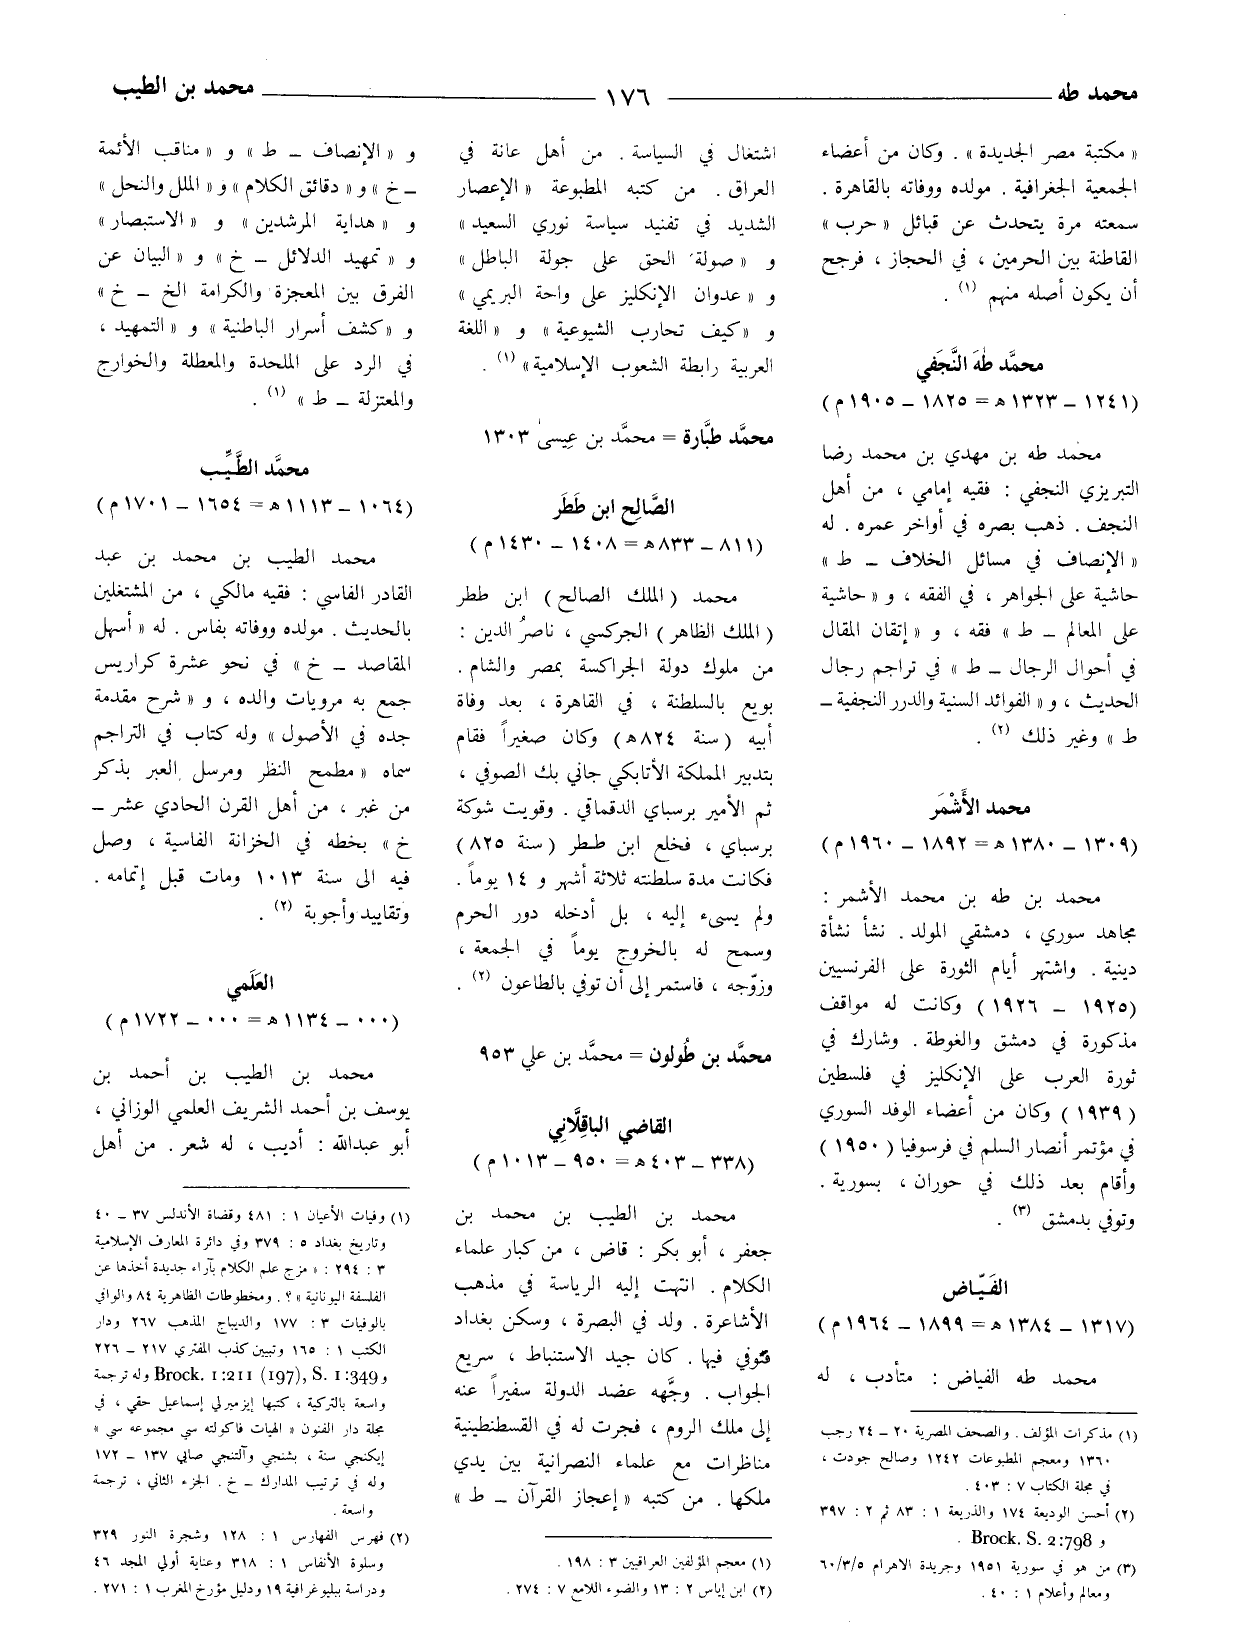 محمد طه ــــ ١٧٦ ــــ محمد بن الطيب
« مكتبة مصر الجديدة » . وكان من أعضاء
الجمعية الجغرافية . مولده ووفاته بالقاهرة .
سمعته مرة يتحدث عن قبائل « حرب »
القاطنة بين الحرمين ، في الحجاز ، فرجح
أن يكون أصله منهم (١) .
محمَّد طٰهَ النَّجَفي
(١٢٤١ ــ ١٣٢٣ ه = ١٨٢٥ ــ ١٩٠٥ م)
محمد طه بن مهدي بن محمد رضا
التبريزي النجفي : فقيه إمامي ، من أهل
النجف . ذهب بصره في أواخر عمره . له
« الإنصاف في مسائل الخلاف ــ ط »
حاشية على الجواهر ، في الفقه ، و « حاشية
على المعالم ــ ط » فقه ، و « إتقان المقال
في أحوال الرجال ــ ط » في تراجم رجال
الحديث ، و « الفوائد السنية والدرر النجفية ــ
ط » وغير ذلك (٢) .
محمد الأَشْمَر
(١٣٠٩ ــ ١٣٨٠ ه = ١٨٩٢ ــ ١٩٦٠ م)
محمد بن طه بن محمد الأشمر :
مجاهد سوري ، دمشقي المولد . نشأ نشأة
دينية . واشتهر أيام الثورة على الفرنسيين
(١٩٢٥ ــ ١٩٢٦) وكانت له مواقف
مذكورة في دمشق والغوطة . وشارك في
ثورة العرب على الإنكليز في فلسطين
(١٩٣٩) وكان من أعضاء الوفد السوري
في مؤتمر أنصار السلم في فرسوفيا (١٩٥٠)
وأقام بعد ذلك في حوران ، بسورية .
وتوفي بدمشق (٣) .
الفَيّاض
(١٣١٧ ــ ١٣٨٤ ه = ١٨٩٩ ــ ١٩٦٤ م)
محمد طه الفياض : متأدب ، له
(١) مذكرات المؤلف . والصحف المصرية ٢٠ ــ ٢٤ رجب
١٣٦٠ ومعجم المطبوعات ١٢٤٢ وصالح جودت ،
في مجلة الكتاب ٧ : ٤٠٣ .
(٢) أحسن الوديعة ١٧٤ والذريعة ١ : ٨٣ ثم ٢ : ٣٩٧
و Brock. S. 2:798 .
(٣) من هو في سورية ١٩٥١ وجريدة الاهرام ٦٠/٣/٥
ومعالم وأعلام ١ : ٤٠ .
اشتغال في السياسة . من أهل عانة في
العراق . من كتبه المطبوعة « الإعصار
الشديد في تفنيد سياسة نوري السعيد »
و « صولة الحق على جولة الباطل »
و « عدوان الإنكليز على واحة البريمي »
و « كيف تحارب الشيوعية » و « اللغة
العربية رابطة الشعوب الإسلامية » (١) .
محمَّد طبَّارة = محمَّد بن عِيسىٰ ١٣٠٣
الصَّالِح ابن طَطَر
(٨١١ ــ ٨٣٣ ه = ١٤٠٨ ــ ١٤٣٠ م)
محمد ( الملك الصالح ) ابن ططر
( الملك الظاهر ) الجركسي ، ناصرُ الدين :
من ملوك دولة الجراكسة بمصر والشام .
بويع بالسلطنة ، في القاهرة ، بعد وفاة
أبيه (سنة ٨٢٤ه) وكان صغيراً فقام
بتدبير المملكة الأتابكي جاني بك الصوفي ،
ثم الأمير برسباي الدقماقي . وقويت شوكة
برسباي ، فخلع ابن ططر (سنة ٨٢٥)
فكانت مدة سلطنته ثلاثة أشهر و ١٤ يوماً .
ولم يسىء إليه ، بل أدخله دور الحرم
وسمح له بالخروج يوماً في الجمعة ،
وزوّجه ، فاستمر إلى أن توفي بالطاعون (٢) .
محمَّد بن طُولون = محمَّد بن علي ٩٥٣
القاضي الباقِلَّاني
(٣٣٨ ــ ٤٠٣ ه = ٩٥٠ ــ ١٠١٣ م)
محمد بن الطيب بن محمد بن
جعفر ، أبو بكر : قاض ، من كبار علماء
الكلام . انتهت إليه الرياسة في مذهب
الأشاعرة . ولد في البصرة ، وسكن بغداد
فتوفي فيها . كان جيد الاستنباط ، سريع
الجواب . وجّهه عضد الدولة سفيراً عنه
إلى ملك الروم ، فجرت له في القسطنطينية
مناظرات مع علماء النصرانية بين يدي
ملكها . من كتبه « إعجاز القرآن ــ ط »
(١) معجم المؤلفين العراقيين ٣ : ١٩٨ .
(٢) ابن إياس ٢ : ١٣ والضوء اللامع ٧ : ٢٧٤ .
و « الإنصاف ــ ط » و « مناقب الأئمة
ــ خ » و « دقائق الكلام » و « الملل والنحل »
و « هداية المرشدين » و « الاستبصار »
و « تمهيد الدلائل ــ خ » و « البيان عن
الفرق بين المعجزة والكرامة الخ ــ خ »
و « كشف أسرار الباطنية » و « التمهيد ،
في الرد على الملحدة والمعطلة والخوارج
والمعتزلة ــ ط » (١) .
محمَّد الطَّيِّب
(١٠٦٤ ــ ١١١٣ ه = ١٦٥٤ ــ ١٧٠١ م)
محمد الطيب بن محمد بن عبد
القادر الفاسي : فقيه مالكي ، من المشتغلين
بالحديث . مولده ووفاته بفاس . له « أسهل
المقاصد ــ خ » في نحو عشرة كراريس
جمع به مرويات والده ، و « شرح مقدمة
جده في الأصول » وله كتاب في التراجم
سماه « مطمح النظر ومرسل العبر بذكر
من غبر ، من أهل القرن الحادي عشر ــ
خ » بخطه في الخزانة الفاسية ، وصل
فيه الى سنة ١٠١٣ ومات قبل إتمامه .
وتقاييد وأجوبة (٢) .
العَلَمي
(٠٠٠ ــ ١١٣٤ ه = ٠٠٠ ــ ١٧٢٢ م)
محمد بن الطيب بن أحمد بن
يوسف بن أحمد الشريف العلمي الوزاني ،
أبو عبدالله : أديب ، له شعر . من أهل
(١) وفيات الأعيان ١ : ٤٨١ وقضاة الأندلس ٣٧ ــ ٤٠
وتاريخ بغداد ٥ : ٣٧٩ وفي دائرة المعارف الإسلامية
٣ : ٢٩٤ : « مزج علم الكلام بآراء جديدة أخذها عن
الفلسفة اليونانية » ؟ . ومخطوطات الظاهرية ٨٤ والوافي
بالوفيات ٣ : ١٧٧ والديباج المذهب ٢٦٧ ودار
الكتب ١ : ١٦٥ وتبيين كذب المفتري ٢١٧ ــ ٢٢٦
و Brock. 1:211 (197), S. 1:349 وله ترجمة
واسعة بالتركية ، كتبها إيزميرلي إسماعيل حقي ، في
مجلة دار الفنون « الهيات فاكولته سي مجموعه سي »
إيكنجي سنة ، بشنجي وآلتنجي صاي ١٣٧ ــ ١٧٢
وله في ترتيب المدارك ــ خ . الجزء الثاني ، ترجمة
واسعة .
(٢) فهرس الفهارس ١ : ١٢٨ وشجرة النور ٣٢٩
وسلوة الأنفاس ١ : ٣١٨ وعناية أولي المجد ٤٦
ودراسة ببليوغرافية ١٩ ودليل مؤرخ المغرب ١ : ٢٧١ .